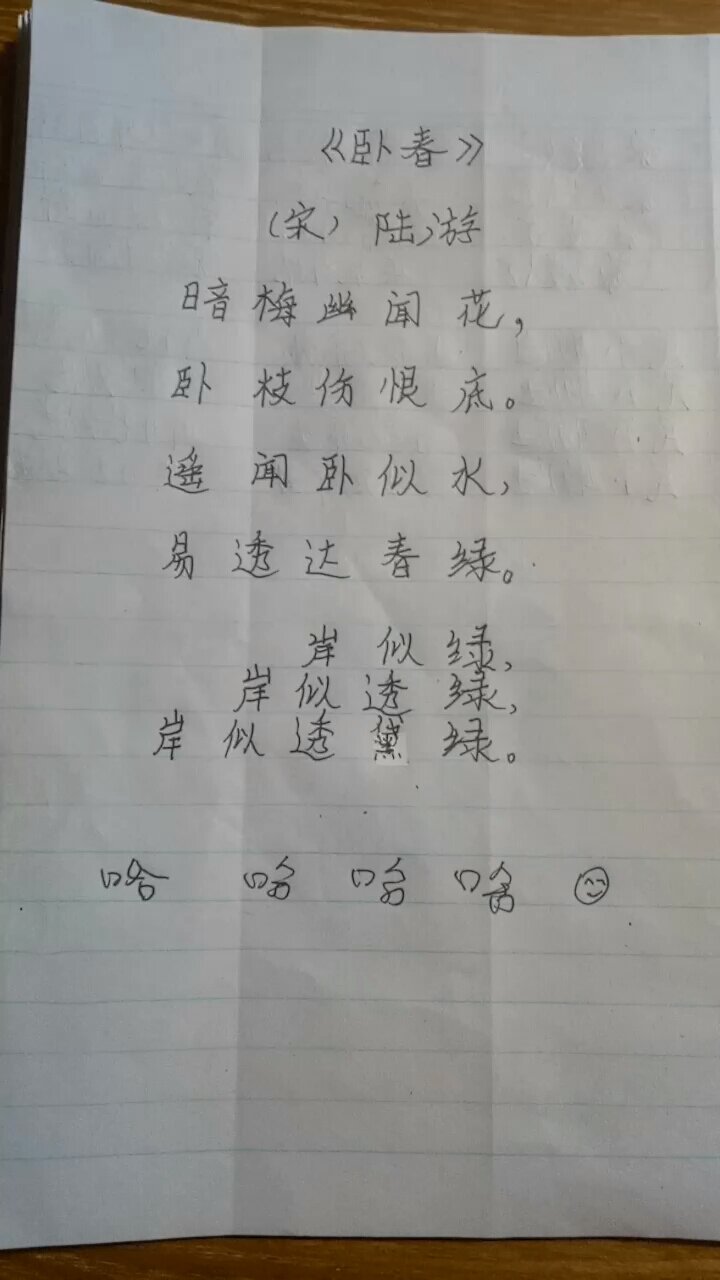 《卧春》
（宋）陆游
暗梅幽闻花，
卧枝伤恨底。
遥闻卧似水，
易透达春绿。
岸似绿，
岸似透绿，
岸似透黛绿。
哈